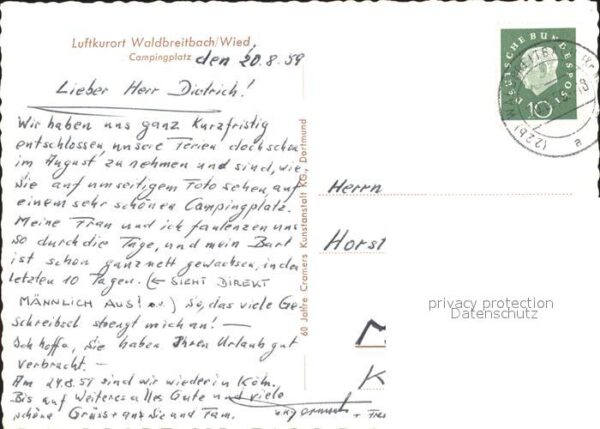 Luftkurort Waldbreitbach/Wied
Campingplatz
den 20.8.59
Lieber Herr Dietrich!
Wir haben uns ganz kurzfristig
entschlossen, unsere Ferien doch schon
im August zu nehmen und sind, wie
Sie auf umseitigem Foto sehen, auf
einem sehr schönen Campingplatz.
Meine Frau und ich faulenzen uns
so durch die Tage, und mein Bart
ist schon ganz nett gewachsen, in den
letzten 10 Tagen. (← SIEHT DIREKT
MÄNNLICH AUS!) So, das viele Ge-
schreibsel strengt mich an! —
Ich hoffe, Sie haben Ihren Urlaub gut
verbracht. —
Am 24.8.59 sind wir wieder in Köln.
Bis auf Weiteres alles Gute und viele
schöne Grüsse an Sie und Fam.
60 Jahre Cramers Kunstanstalt KG., Dortmund
DEUTSCHE BUNDESPOST
10
(22b)
a
Herrn
Horst
privacy protection
Datenschutz
K